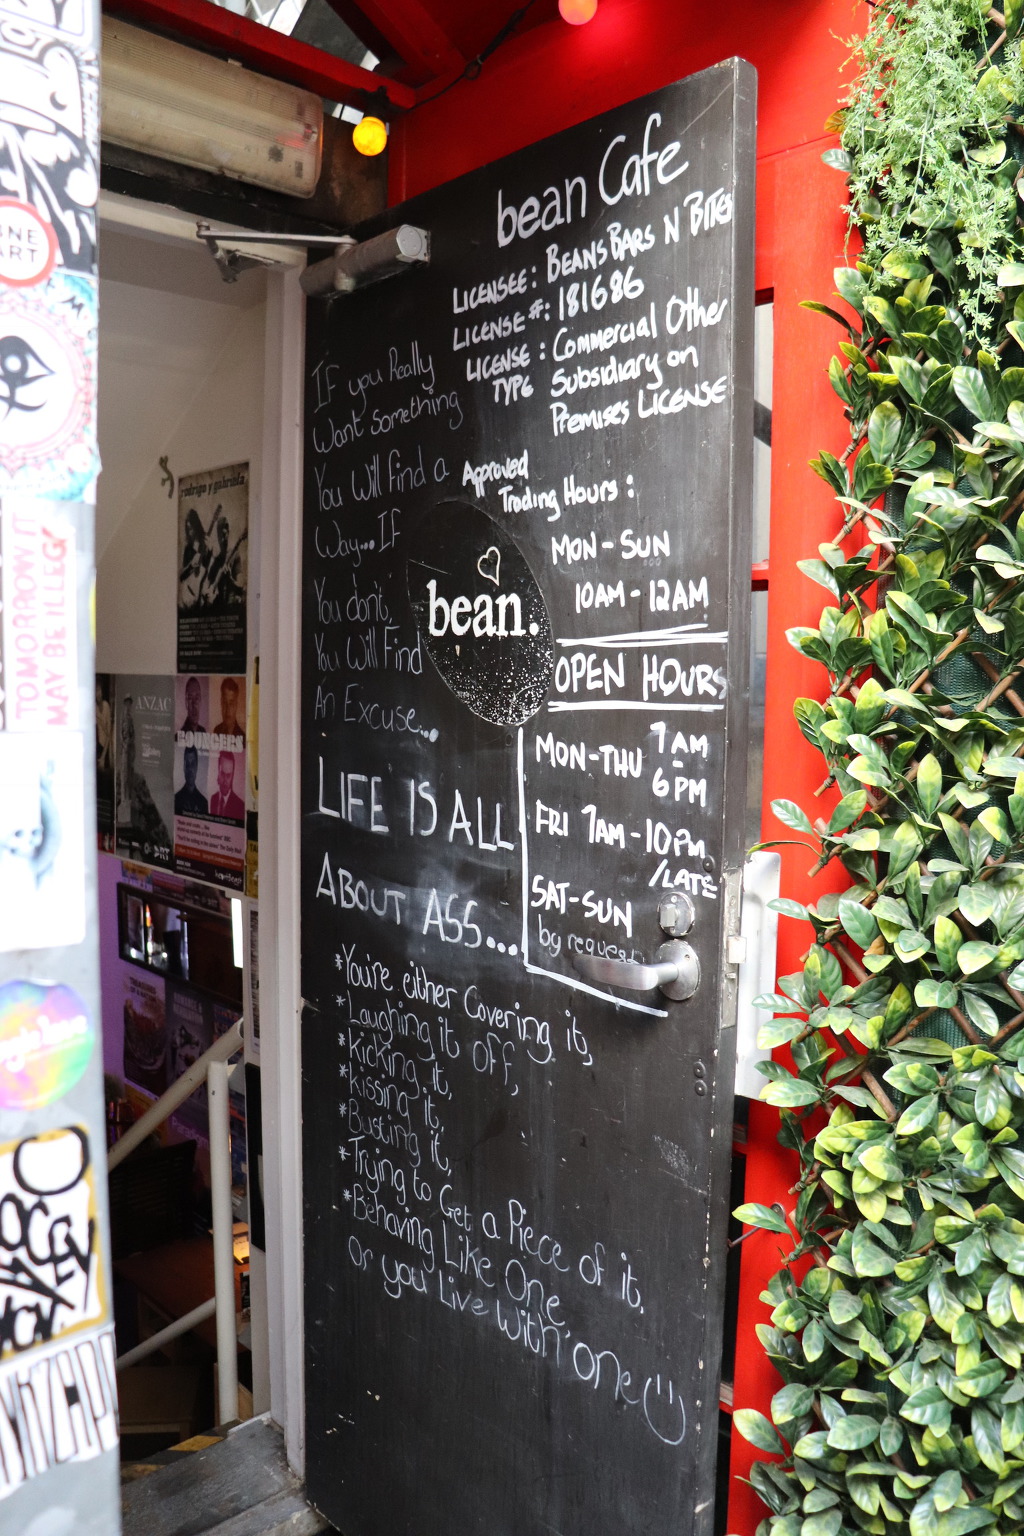 bean Cafe
LICENSEE: BEANS BARS N BITES
LICENSE #: 181686
LICENSE TYPE : Commercial Other
Subsidiary on
Premises LICENSE
Approved
Trading Hours :
MON - SUN
10AM - 12AM
OPEN HOURS
MON-THU 7AM - 6PM
FRI 7AM - 10PM
/LATE
SAT-SUN
by request
IF you Really
Want something
You Will find a
Way... IF
You don't,
You Will Find
An Excuse...
bean.
LIFE IS ALL
ABOUT ASS...
*You're either Covering it,
*Laughing it off,
*kicking it,
*kissing it,
*Busting it,
*Trying to Get a Piece of it,
*Behaving Like One,
or you Live With one
rodrigo y gabriela
ANZAC
BOUNCERS
TOMORROW IT
MAY BE ILLEGAL
ART